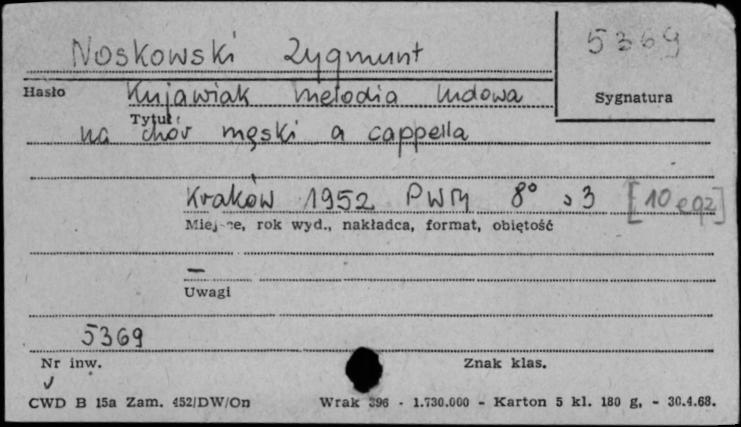 Noskowski Zygmunt
5369
Hasło
Kujawiak melodia ludowa
Sygnatura
Tytuł:
na chór męski a cappella
Kraków 1952 PWM 8° s 3 [10 egz]
Miejsce, rok wyd., nakładca, format, objętość
—
Uwagi
5369
Nr inw.
Znak klas.
CWD B 15a Zam. 452/DW/On Wrak 396 - 1.730.000 - Karton 5 kl. 180 g. - 30.4.68.